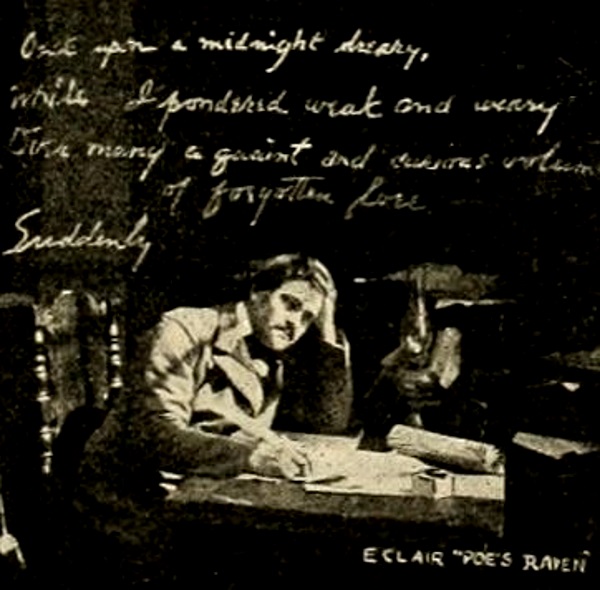 Once upon a midnight dreary,
while I pondered weak and weary
Over many a quaint and curious volum
of forgotten lore
Suddenly
ECLAIR "POE'S RAVEN"